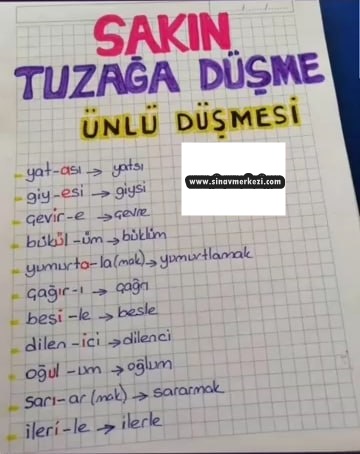 SAKIN
TUZAĞA DÜŞME
ÜNLÜ DÜŞMESİ
www.sinavmerkezi.com
- yat-ası → yatsı
- giy-esi → giysi
- çevir-e → çevre
- bükül-üm → büklüm
- yumurta-la(mak) → yumurtlamak
- çağır-ı → çağrı
- beşi-le → beşle
- dilen-ici → dilenci
- oğul-um → oğlum
- sarı-ar (mak) → sararmak
- ileri-le → ilerle